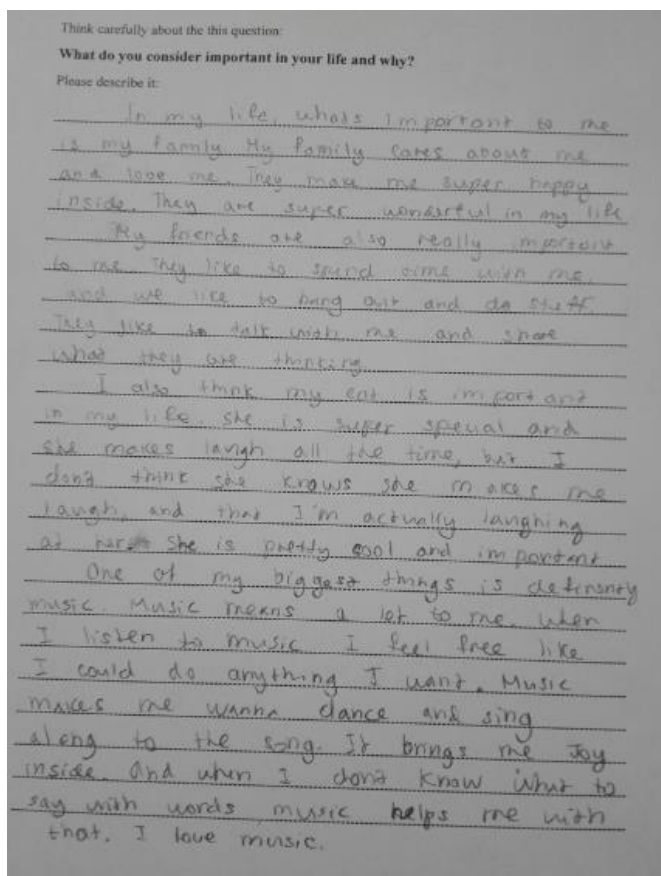 Think carefully about the this question:
What do you consider important in your life and why?
Please describe it:
In my life, whats important to me
is my family. My family cares about me
and love me. They make me super happy
inside. They are super wonderful in my life
My friends are also really important
to me. They like to spend time with me.
and we like to hang out and do stuff.
They like to talk with me and share
what they are thinking.
I also think my cat is important
in my life. She is super special and
she makes laugh all the time, but I
don't think she knows she makes me
laugh, and that I'm actually laughing
at her. She is pretty cool and important
One of my biggest things is definently
music. Music means a lot to me. When
I listen to music I feel free like
I could do anything I want. Music
makes me wanna dance and sing
along to the song. It brings me Joy
inside. And when I don't know what to
say with words, music helps me with
that. I love music.